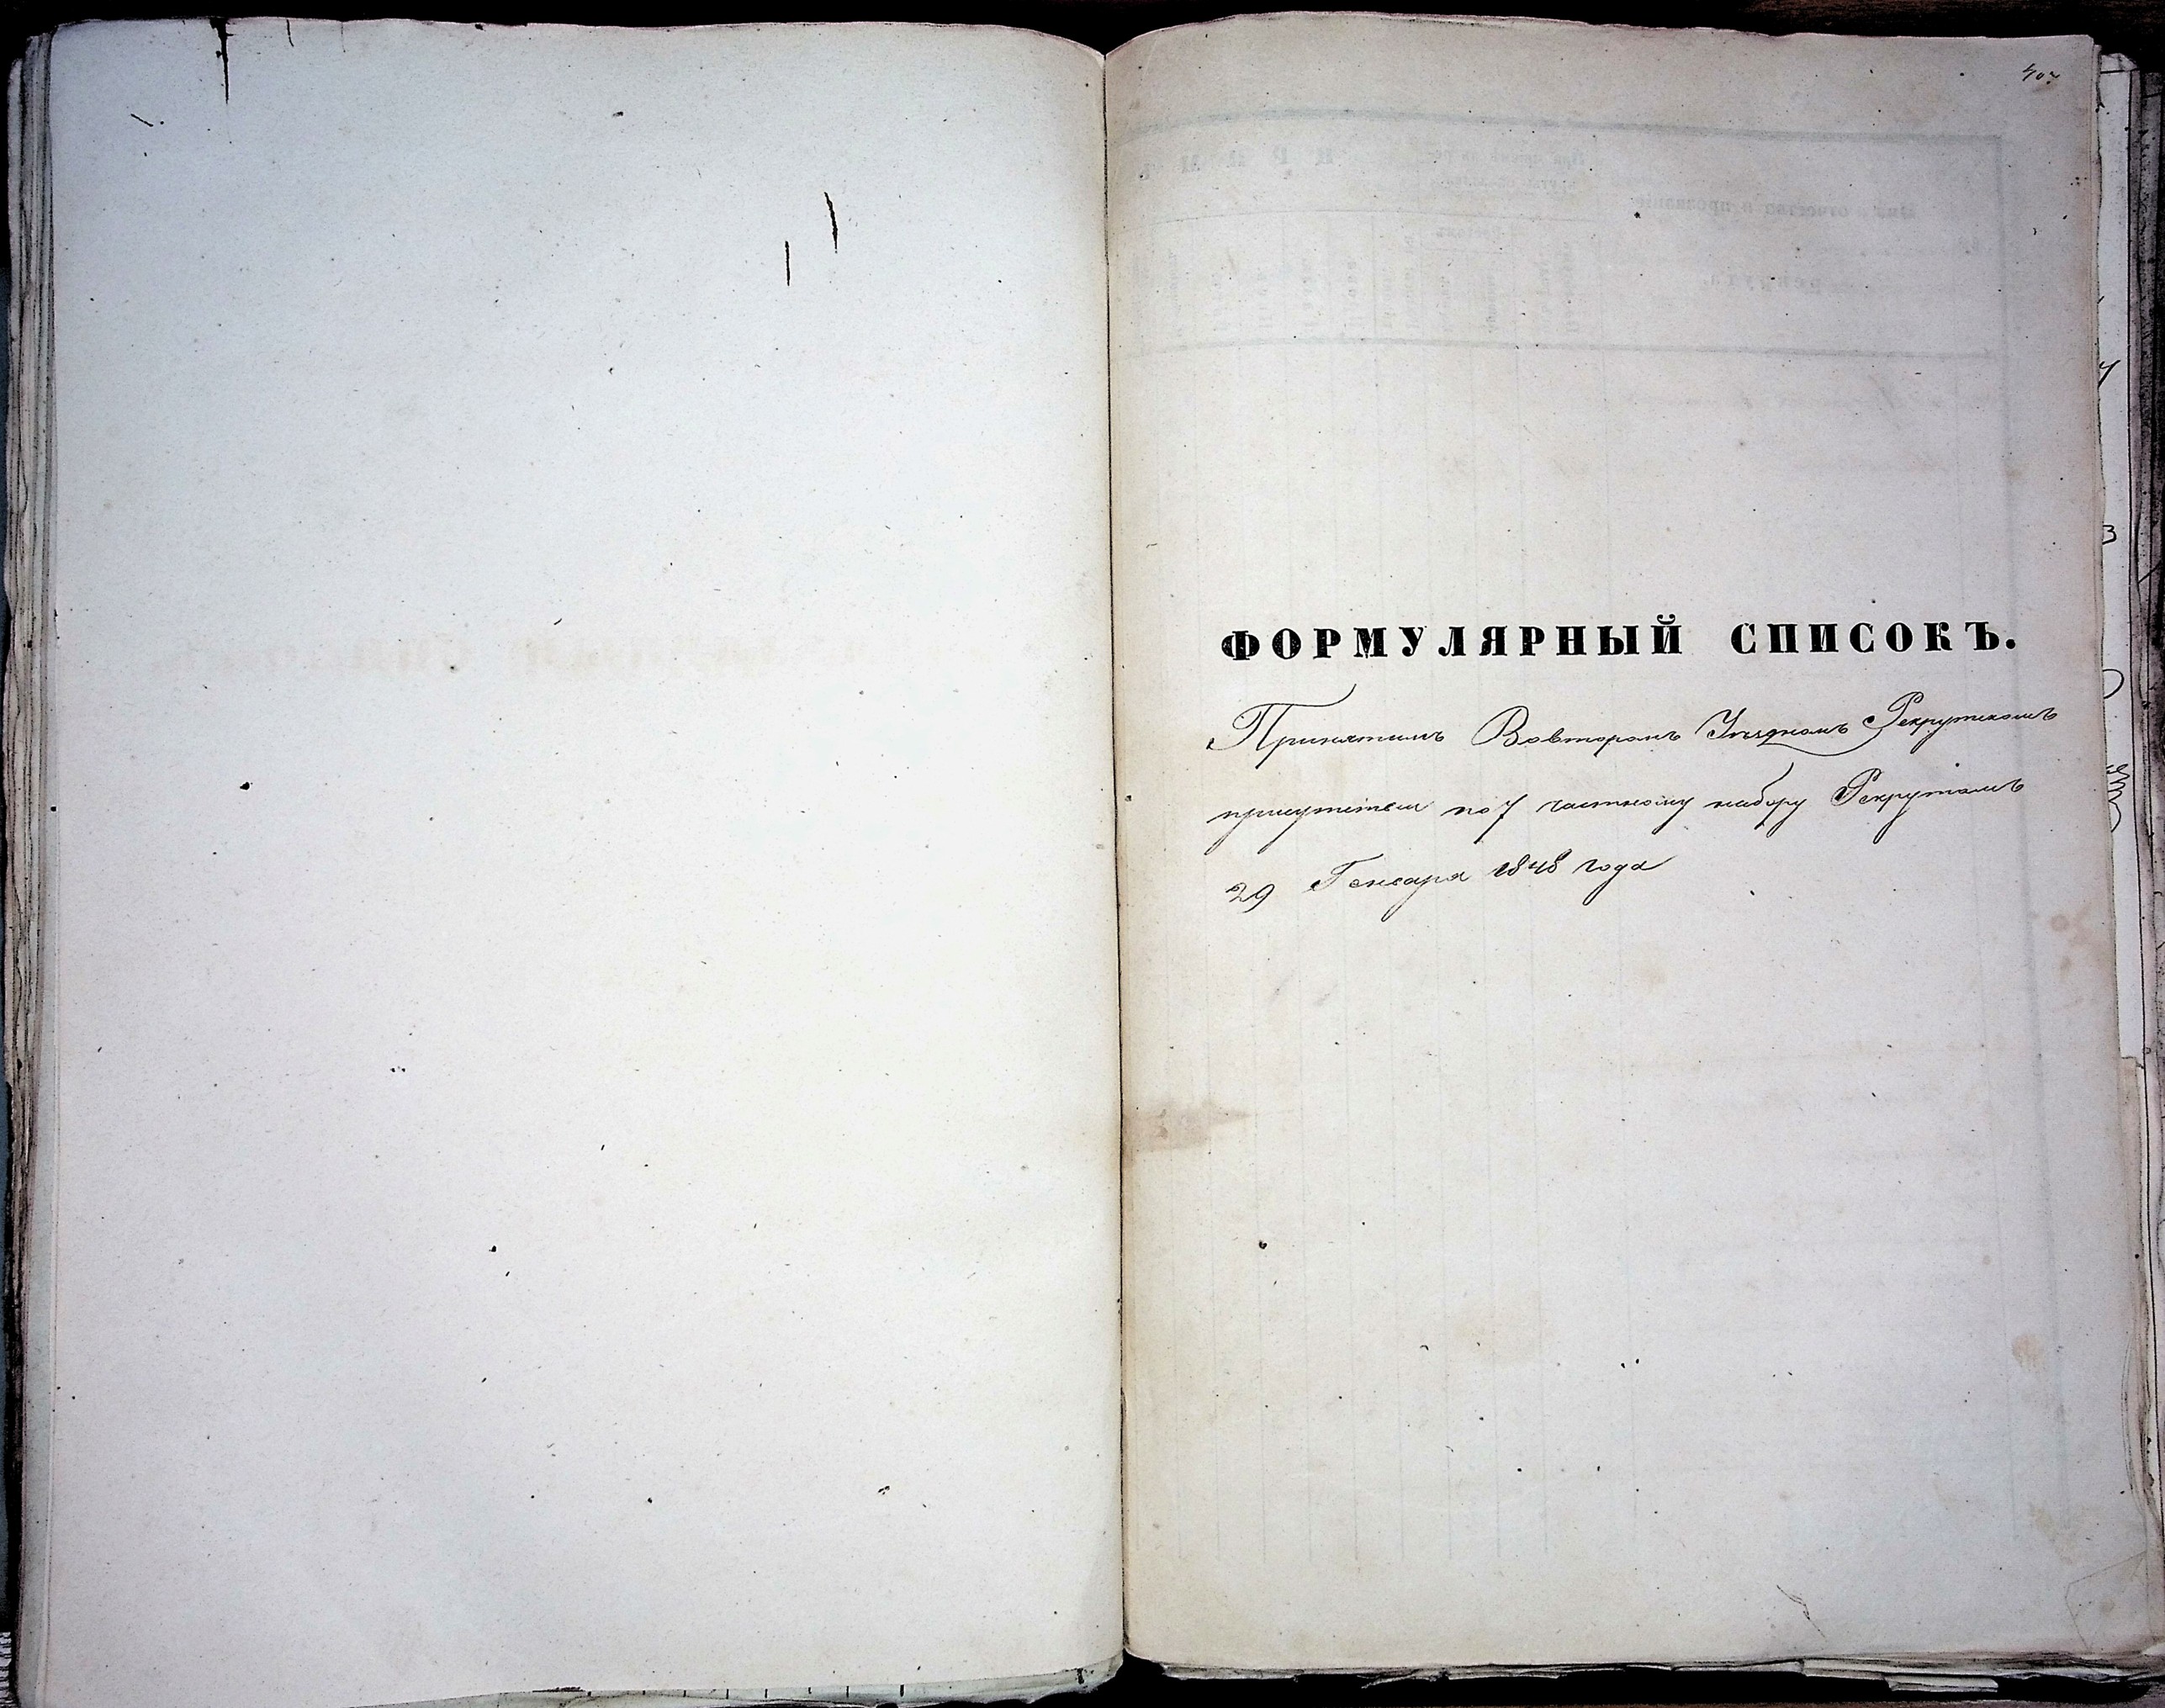 407
ФОРМУЛЯРНЫЙ СПИСОКЪ.
Принятымъ Вовторомъ Уѣздномъ Рекрутскомъ
присутствіи по 7 частному набору Рекрутамъ
29 Генваря 1848 года